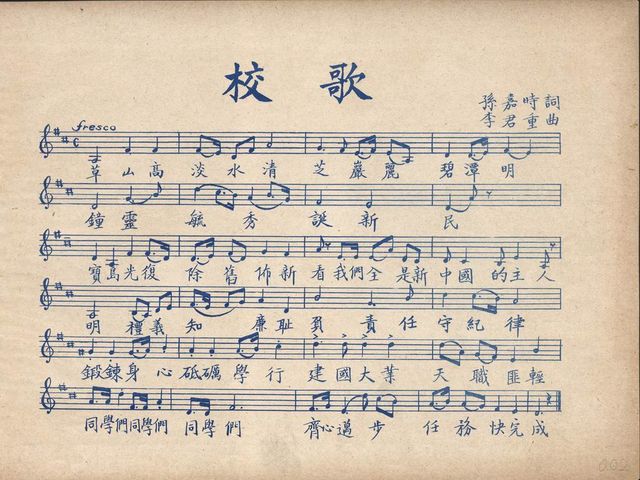 校歌
孫嘉時詞
李君重曲
fresco
草山高淡水清芝巖麗碧潭明
鐘靈毓秀誕新民
寶島光復除舊佈新看我們全是新中國的主人
明禮義知廉恥負責任守紀律
鍛鍊身心砥礪學行建國大業天職匪輕
同學們同學們同學們齊心邁步任務快完成
002